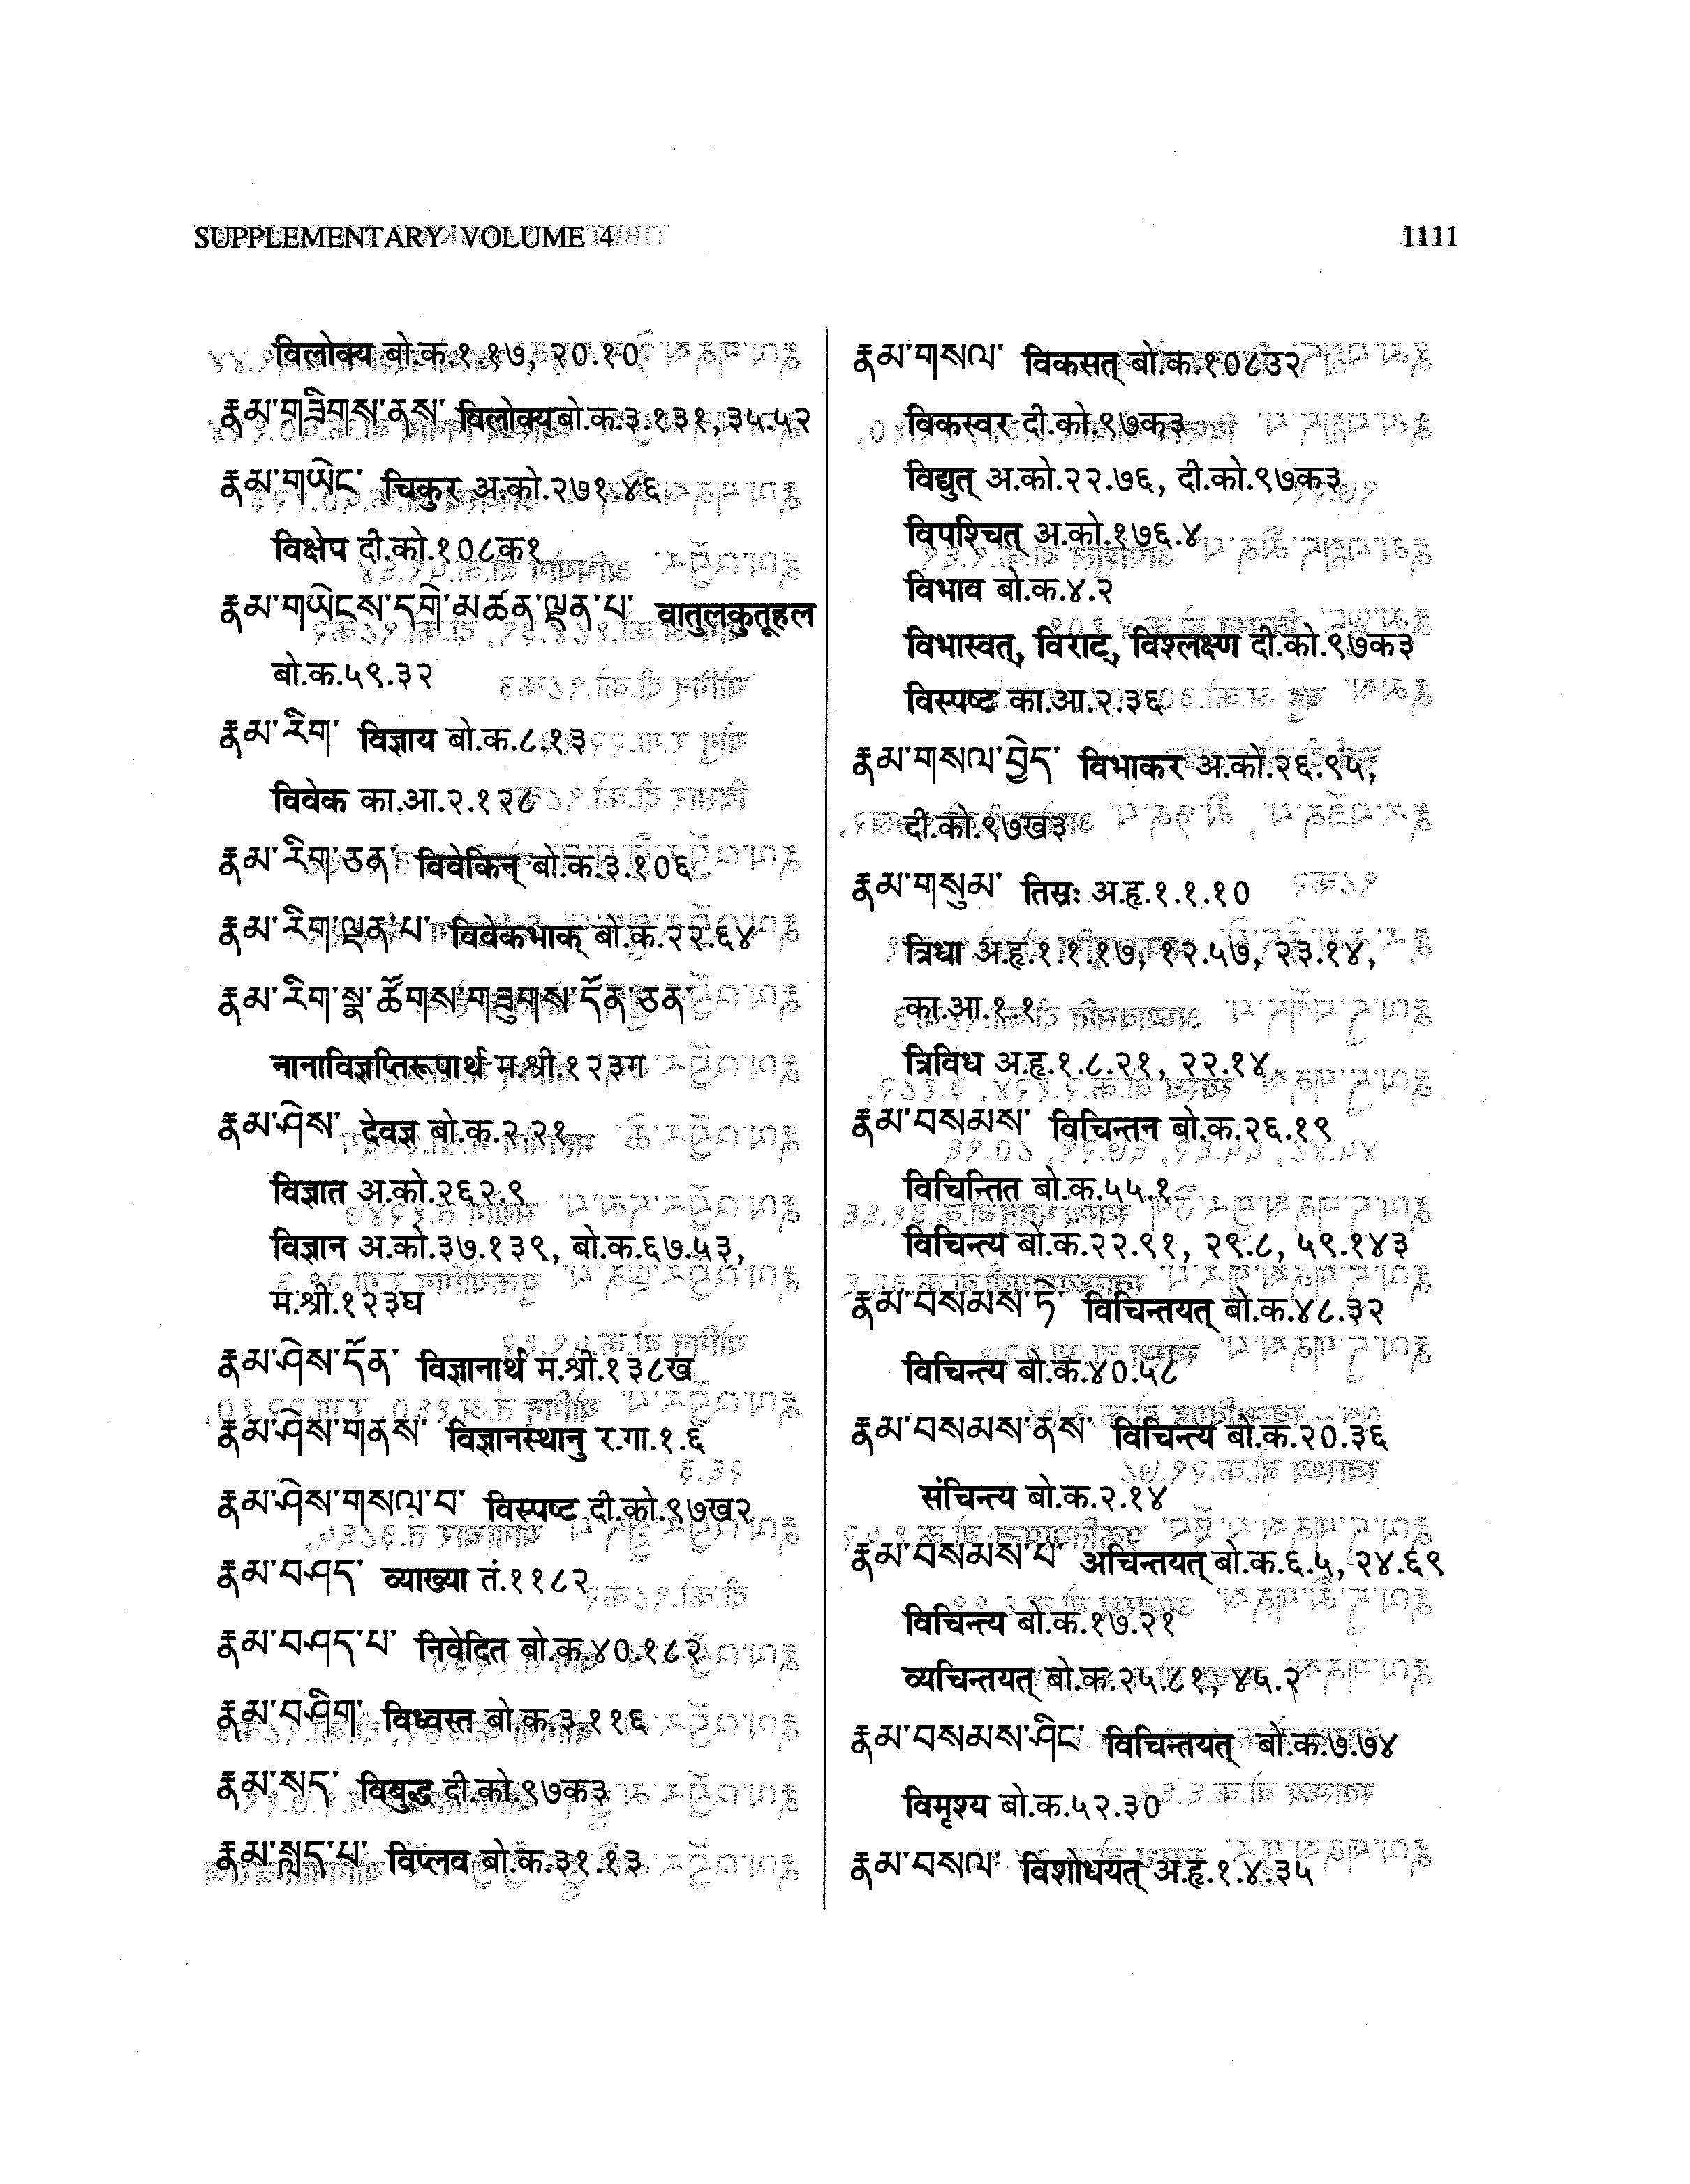 SUPPLEMENTARY VOLUME 4
1111
विलोक्य बो.क.१.१७, २०.१०
རྣམ་གཟིགས་ནས་ विलोक्यबो.क.३.१३१,३५.५२
རྣམ་གཡེང་ चिकुर अ.को.२७१.४६
विक्षेप दी.को.१०८क१
རྣམ་གཡེངས་དགེ་མཚན་ལྡན་པ་ वातुलकुतूहल
बो.क.५९.३२
རྣམ་རིག་ विज्ञाय बो.क.८.१३
विवेक का.आ.२.१२८
རྣམ་རིག་ཅན་ विवेकिन् बो.क.३.१०६
རྣམ་རིག་ལྡན་པ་ विवेकभाक् बो.क.२२.६४
རྣམ་རིག་སྣ་ཚོགས་གཟུགས་དོན་ཅན་
नानाविज्ञप्तिरूपार्थ म.श्री.१२३ग
རྣམ་ཤེས་ देवज्ञ बो.क.२.२१
विज्ञात अ.को.२६२.९
विज्ञान अ.को.३७.१३९, बो.क.६७.५३,
म.श्री.१२३घ
རྣམ་ཤེས་དོན་ विज्ञानार्थ म.श्री.१३८ख
རྣམ་ཤེས་གནས་ विज्ञानस्थानु र.गा.१.६
རྣམ་ཤེས་གསལ་བ་ विस्पष्ट दी.को.९७ख२
རྣམ་བཤད་ व्याख्या तं.११८२
རྣམ་བཤད་པ་ निवेदित बो.क.४०.१८२
རྣམ་བཤིག་ विध्वस्त बो.क.३.११६
རྣམ་སད་ विबुद्ध दी.को.९७क३
རྣམ་སླད་པ་ विप्लव बो.क.३१.१३
རྣམ་གསལ་ विकसत् बो.क.१०८उ२
विकस्वर दी.को.९७क३
विद्युत् अ.को.२२.७६, दी.को.९७क३
विपश्चित् अ.को.१७६.४
विभाव बो.क.४.२
विभास्वत्, विराट्, विश्लक्ष्ण दी.को.९७क३
विस्पष्ट का.आ.२.३६
རྣམ་གསལ་བྱེད་ विभाकर अ.को.२६.९५,
दी.को.९७ख३
རྣམ་གསུམ་ तिस्रः अ.हृ.१.१.१०
त्रिधा अ.हृ.१.१.१७, १२.५७, २३.१४,
का.आ.१.१
त्रिविध अ.हृ.१.८.२१, २२.१४
རྣམ་བསམས་ विचिन्तन बो.क.२६.१९
विचिन्तित बो.क.५५.१
विचिन्त्य बो.क.२२.९१, २९.८, ५९.१४३
རྣམ་བསམས་ཏེ་ विचिन्तयत् बो.क.४८.३२
विचिन्त्य बो.क.४०.५८
རྣམ་བསམས་ནས་ विचिन्त्य बो.क.२०.३६
संचिन्त्य बो.क.२.१४
རྣམ་བསམས་པ་ अचिन्तयत् बो.क.६.५, २४.६९
विचिन्त्य बो.क.१७.२१
व्यचिन्तयत् बो.क.२५.८१, ४५.२
རྣམ་བསམས་ཤིང་ विचिन्तयत् बो.क.७.७४
विमृश्य बो.क.५२.३०
རྣམ་བསལ་ विशोधयत् अ.हृ.१.४.३५